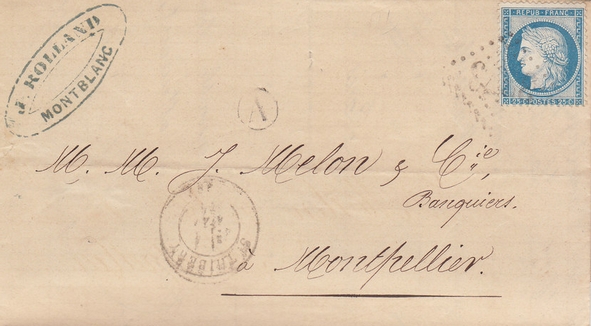 J. ROLLAND
MONTBLANC
REPUB. FRANC.
25 C. POSTES 25 C.
A
M. M. J. Melon & Cie,
Banquiers.
à Montpellier.
ST THIBERY